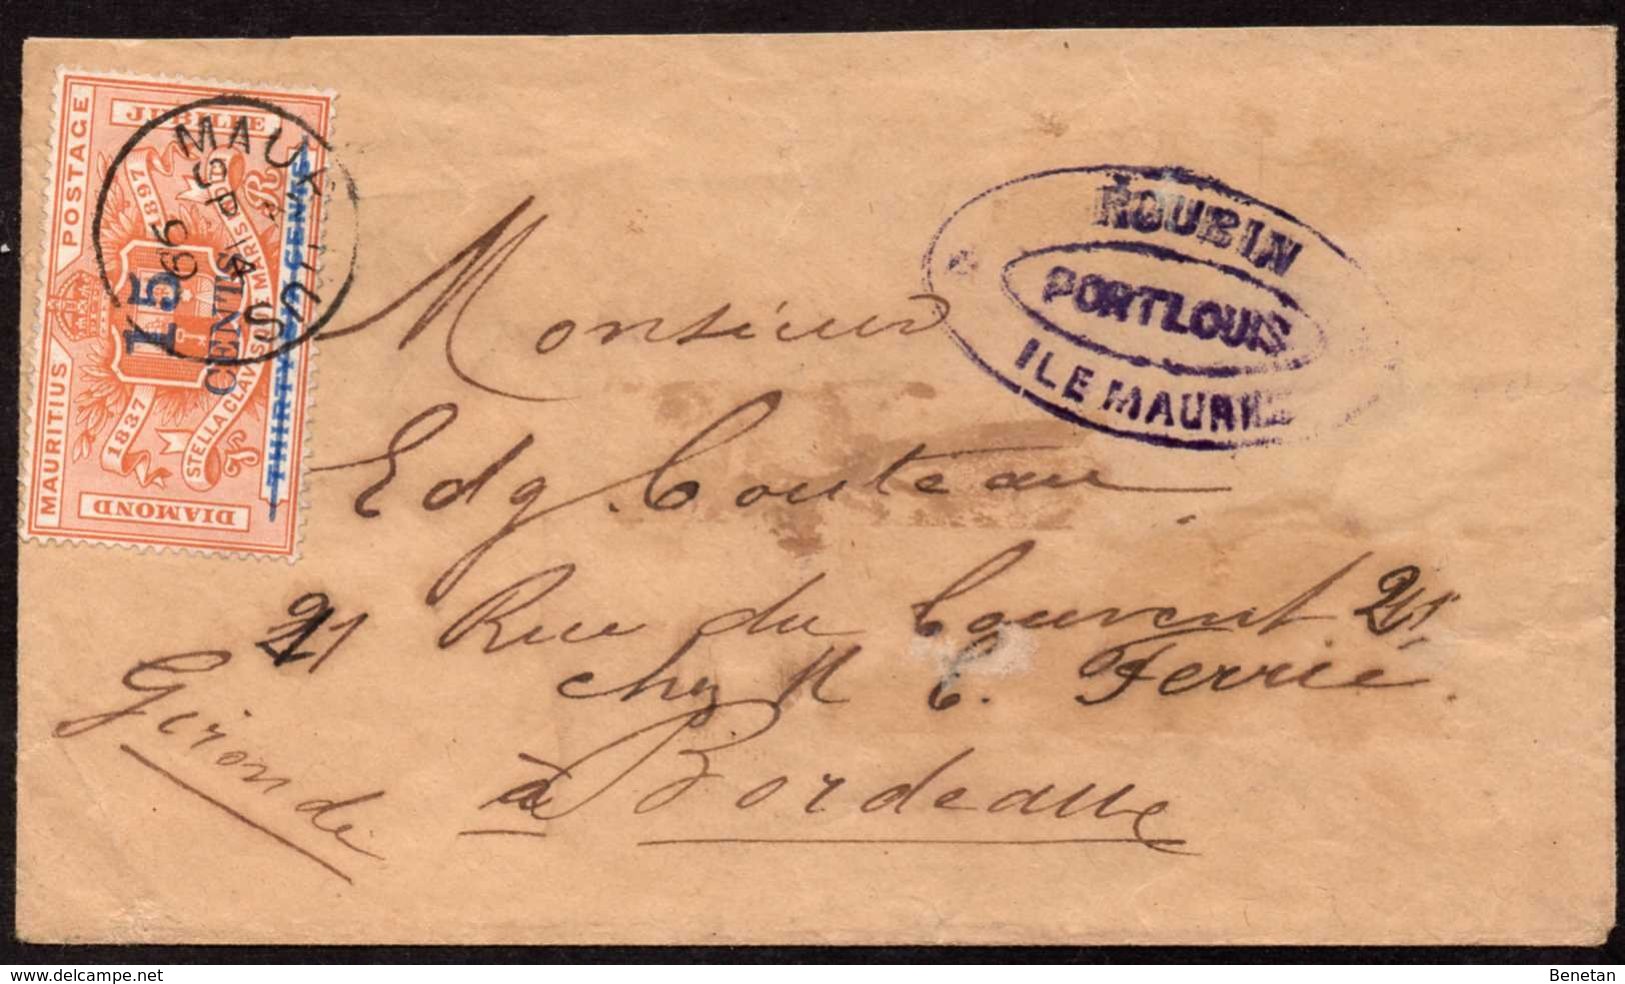 MAURITIUS POSTAGE
DIAMOND JUBILEE
1837 1897
STELLA CLAVISQUE MARIS INDICI
V R
THIRTY-SIX CENTS
15
CENTS
MAURITIUS
SP 14
99
ROUBIN
PORT LOUIS
ILE MAURICE
Monsieur
Edg. Couteau
21 Rue du Couvent 21
chez M C. Ferrié
à Bordeaux
Gironde
www.delcampe.net
Benetan